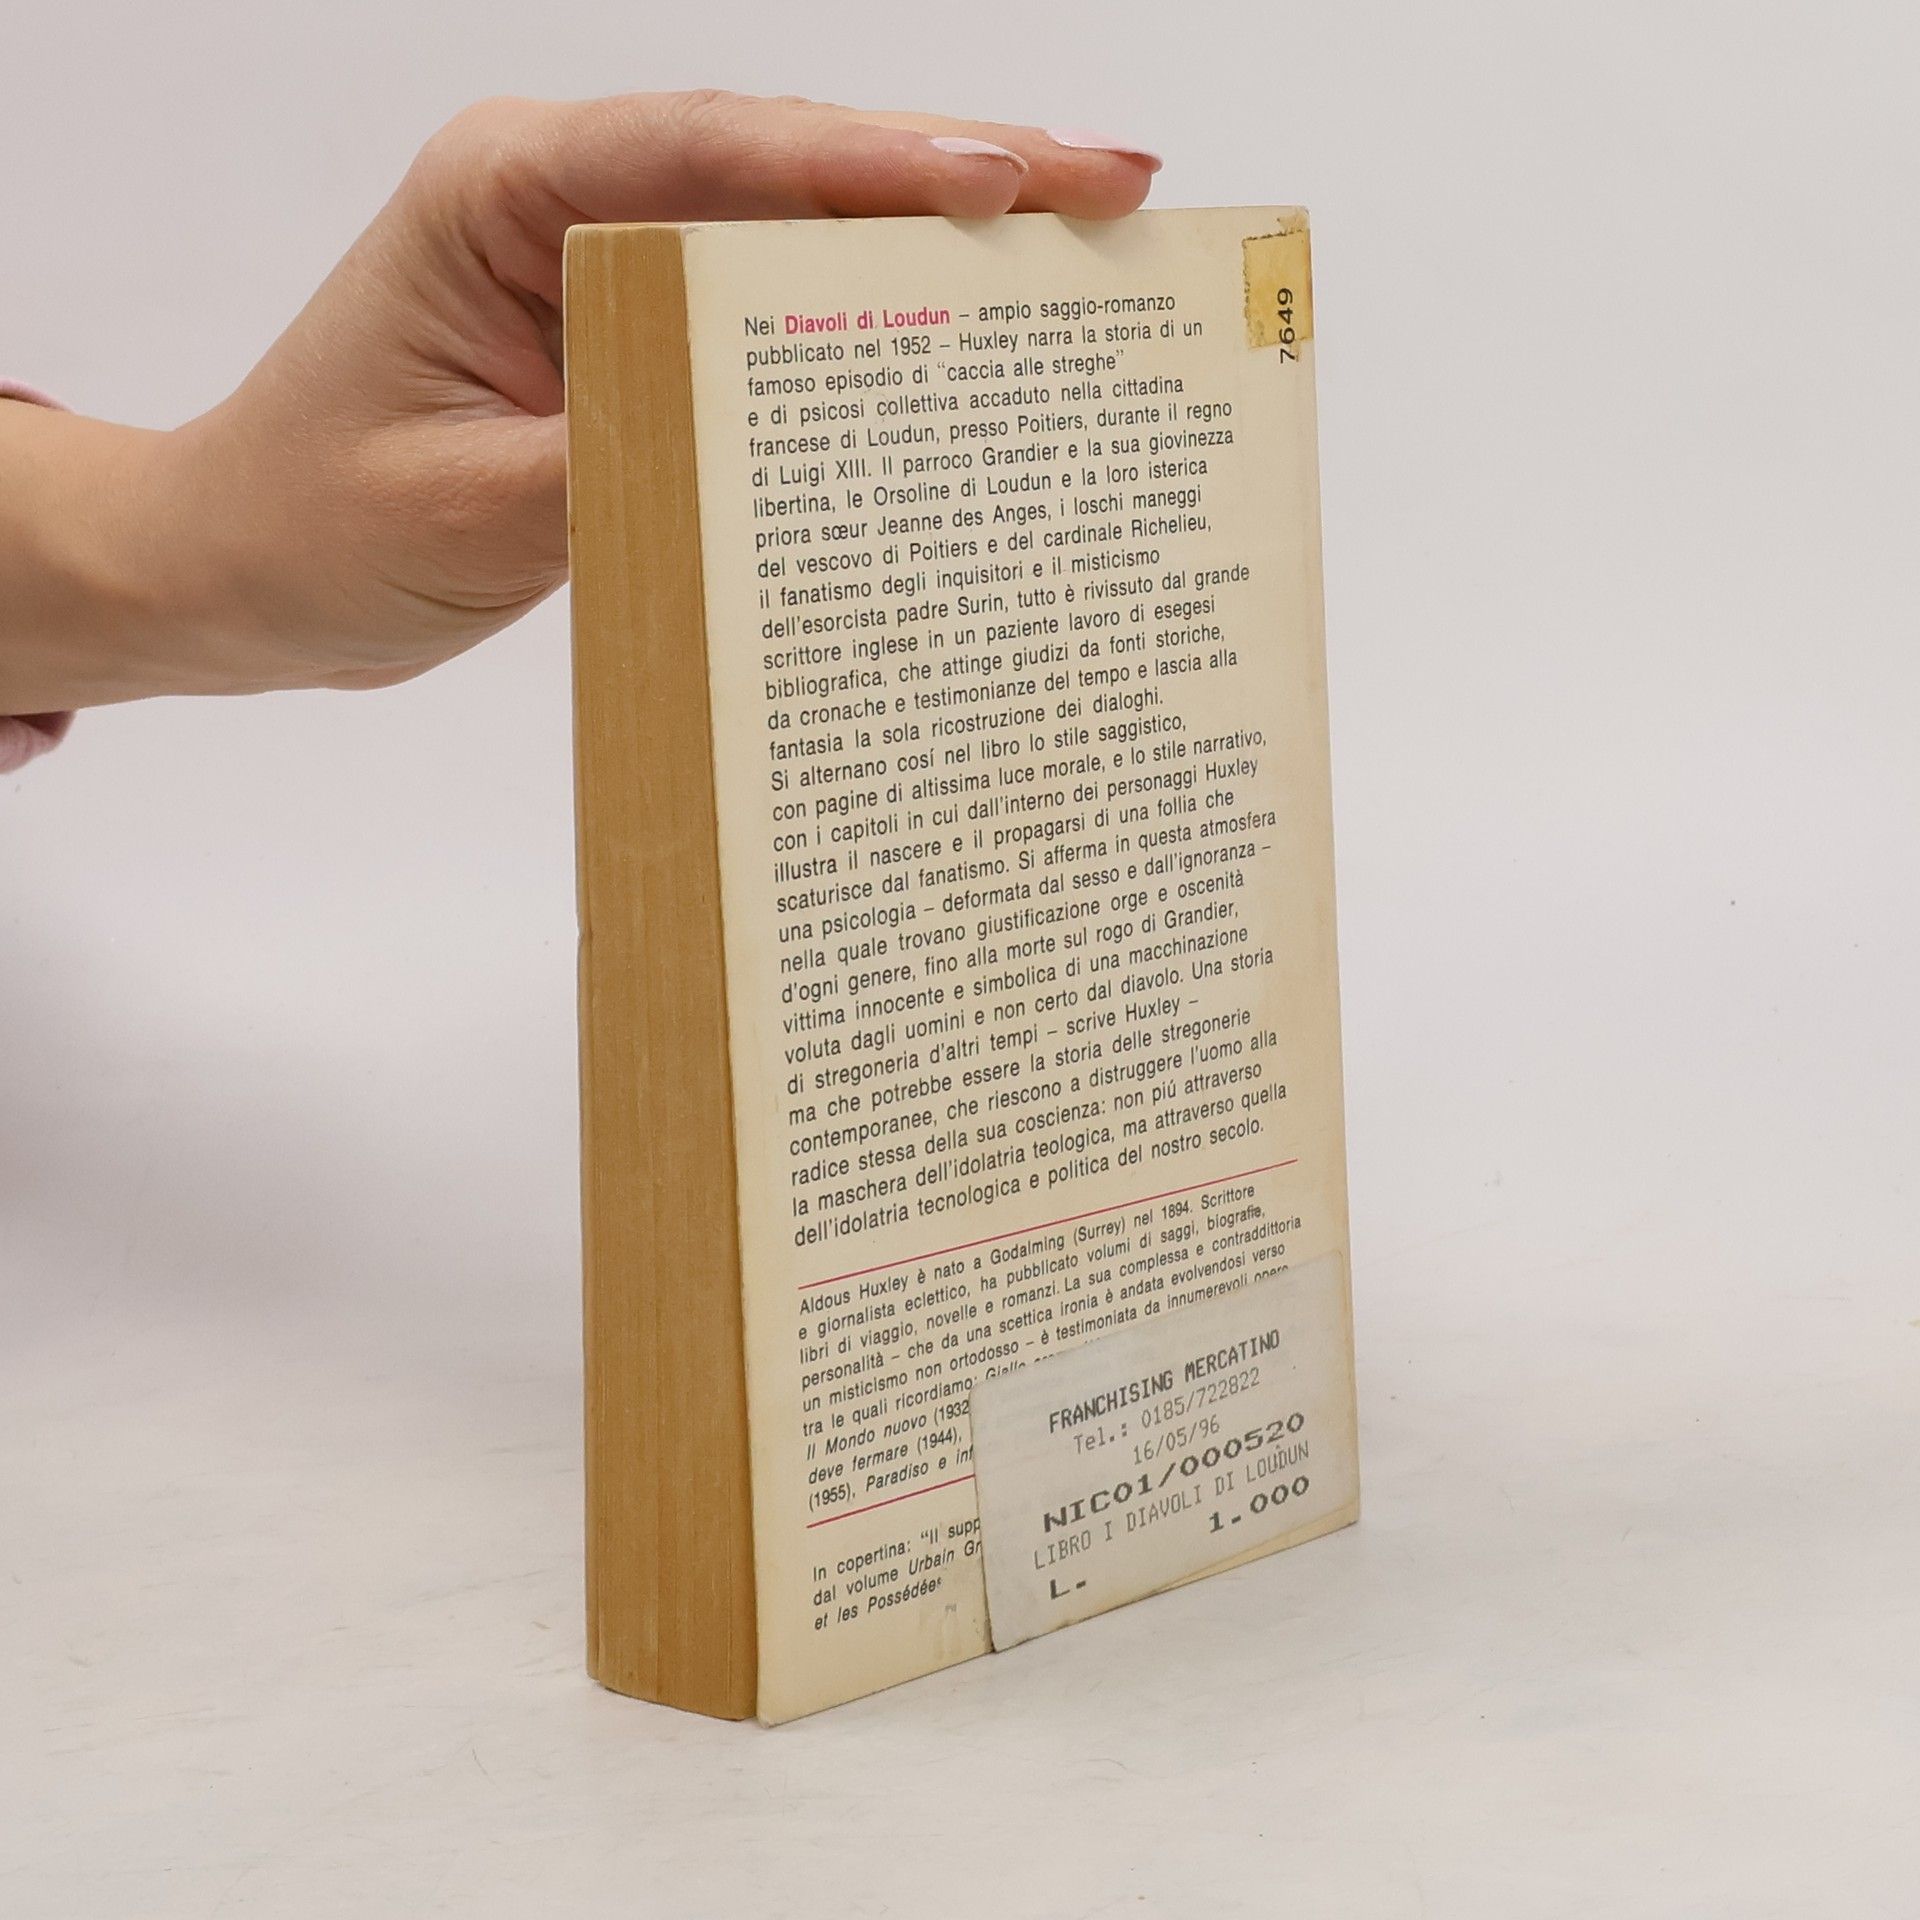 Nei Diavoli di Loudun – ampio saggio-romanzo
pubblicato nel 1952 – Huxley narra la storia di un
famoso episodio di “caccia alle streghe”
e di psicosi collettiva accaduto nella cittadina
francese di Loudun, presso Poitiers, durante il regno
di Luigi XIII. Il parroco Grandier e la sua giovinezza
libertina, le Orsoline di Loudun e la loro isterica
priora sœur Jeanne des Anges, i loschi maneggi
del vescovo di Poitiers e del cardinale Richelieu,
il fanatismo degli inquisitori e il misticismo
dell'esorcista padre Surin, tutto è rivissuto dal grande
scrittore inglese in un paziente lavoro di esegesi
bibliografica, che attinge giudizi da fonti storiche,
da cronache e testimonianze del tempo e lascia alla
fantasia la sola ricostruzione dei dialoghi.
Si alternano cosí nel libro lo stile saggistico,
con pagine di altissima luce morale, e lo stile narrativo,
con i capitoli in cui dall'interno dei personaggi Huxley
illustra il nascere e il propagarsi di una follia che
scaturisce dal fanatismo. Si afferma in questa atmosfera
una psicologia – deformata dal sesso e dall'ignoranza –
nella quale trovano giustificazione orge e oscenità
d'ogni genere, fino alla morte sul rogo di Grandier,
vittima innocente e simbolica di una macchinazione
voluta dagli uomini e non certo dal diavolo. Una storia
di stregoneria d'altri tempi – scrive Huxley –
ma che potrebbe essere la storia delle stregonerie
contemporanee, che riescono a distruggere l'uomo alla
radice stessa della sua coscienza: non piú attraverso
la maschera dell'idolatria teologica, ma attraverso quella
dell'idolatria tecnologica e politica del nostro secolo.
Aldous Huxley è nato a Godalming (Surrey) nel 1894. Scrittore
e giornalista eclettico, ha pubblicato volumi di saggi, biografie,
libri di viaggio, novelle e romanzi. La sua complessa e contraddittoria
personalità – che da una scettica ironia è andata evolvendosi verso
un misticismo non ortodosso – è testimoniata da innumerevoli opere
tra le quali ricordiamo: Giallo
Il Mondo nuovo (1932
deve fermare (1944),
(1955), Paradiso e inf
In copertina: “Il supp
dal volume Urbain Gr
et les Possédées
7649
FRANCHISING MERCATINO
Tel.: 0185/722822
16/05/96
NIC01/000520
LIBRO I DIAVOLI DI LOUDUN
L. 1.000